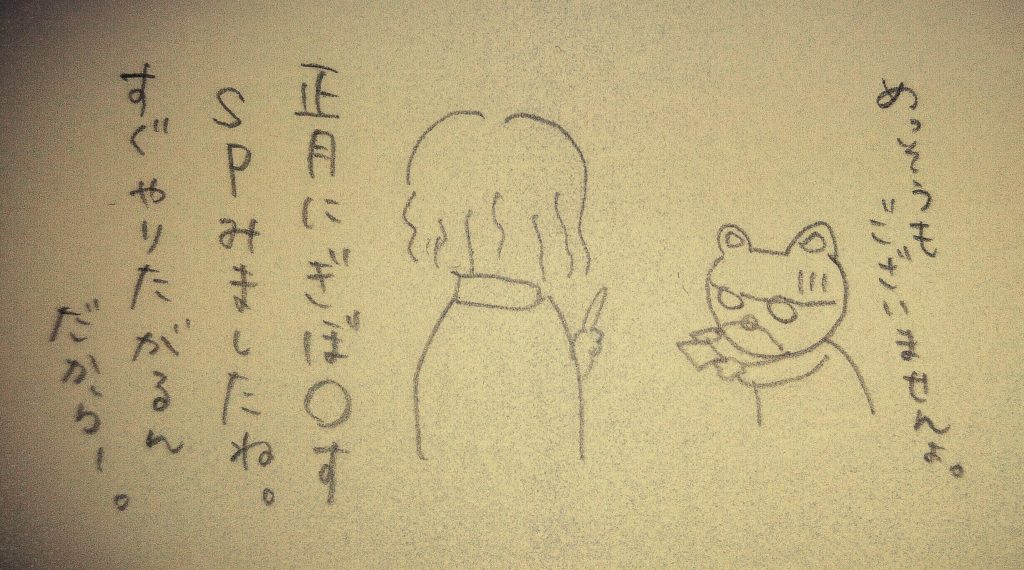 めっそうも
ございませんよ。
正月にぎぼ〇す
SPみましたね。
すぐやりたがるん
だからー。